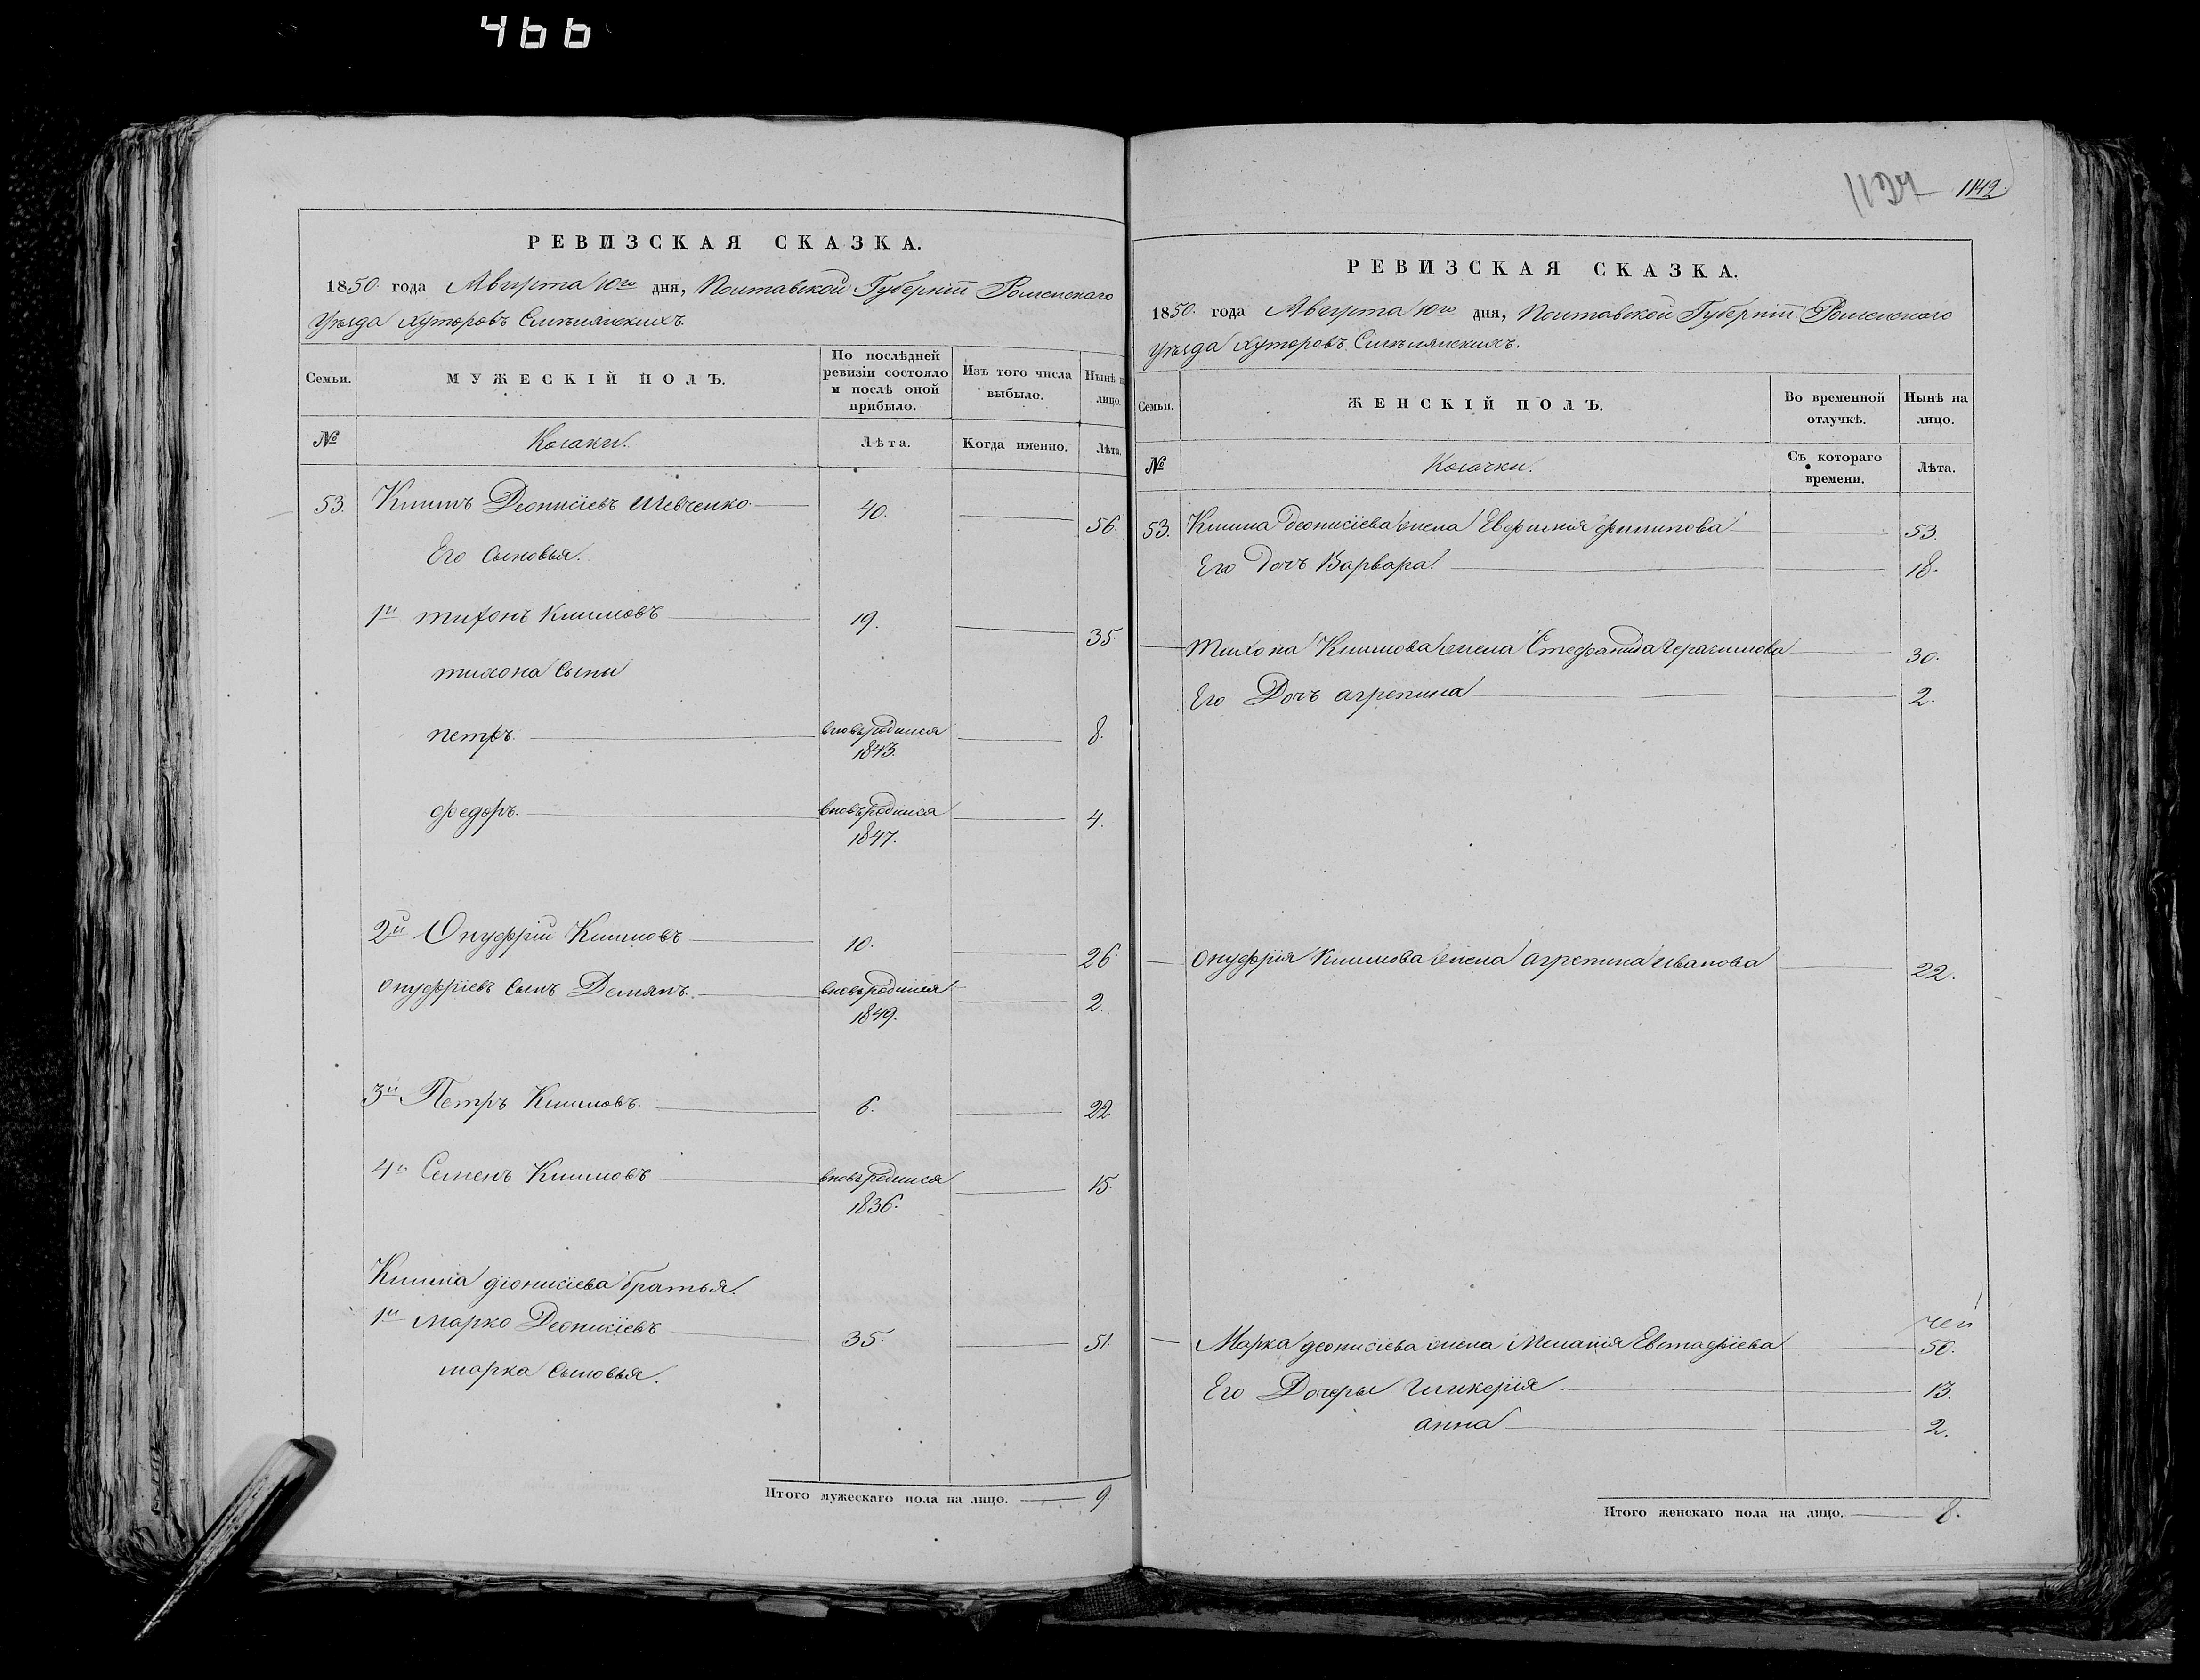 466
1142
РЕВИЗСКАЯ СКАЗКА.
1850 года Августа 10го дня, Полтавской Губерніи Роменскаго
Уѣзда Хуторовъ Смѣлянскихъ.
Семьи.
МУЖЕСКІЙ ПОЛЪ.
По послѣдней ревизіи состояло и послѣ оной прибыло.
Изъ того числа выбыло.
Нынѣ на лицо.
№
Козаки.
Лѣта.
Когда именно.
Лѣта.
53. Климъ Деонисіевъ Шевченко 40. 56.
Его сыновья.
1й тихонъ Климовъ 19. 35.
тихона сыны
петръ. вновьродился 1843. 8.
федоръ. вновьродился 1847. 4.
2й Онуфрій Климовъ 10. 26.
онуфріевъ сынъ Демянъ. вновьродился 1849. 2.
3й Петръ Климовъ. 6. 22
4й Семенъ Климовъ вновьродился 1836. 15.
Клима діонисіева братья.
1й Марко Деонисіевъ 35. 51.
марка сыновья.
Итого мужескаго пола на лицо. 9.
РЕВИЗСКАЯ СКАЗКА.
1850. года Августа 10го дня, Полтавской Губерніи Роменскаго
Уѣзда Хуторовъ Смѣлянскихъ.
Семьи.
ЖЕНСКІЙ ПОЛЪ.
Во временной отлучкѣ.
Нынѣ на лицо.
№
Козачки.
Съ котораго времени.
Лѣта.
53. Клима Деонисіева жена Евфимія филипова 53.
Его дочь Варвара. 18.
Тихона Климова жена Стефанида Герасимова 30.
Его Дочь агрепина 2.
онуфрія Климова жена агрепина иванова 22.
Марка деонисіева жена Меланія Евстафіева 50.
Его Дочеры Гликерія 13.
анна 2.
Итого женскаго пола на лицо. 8.